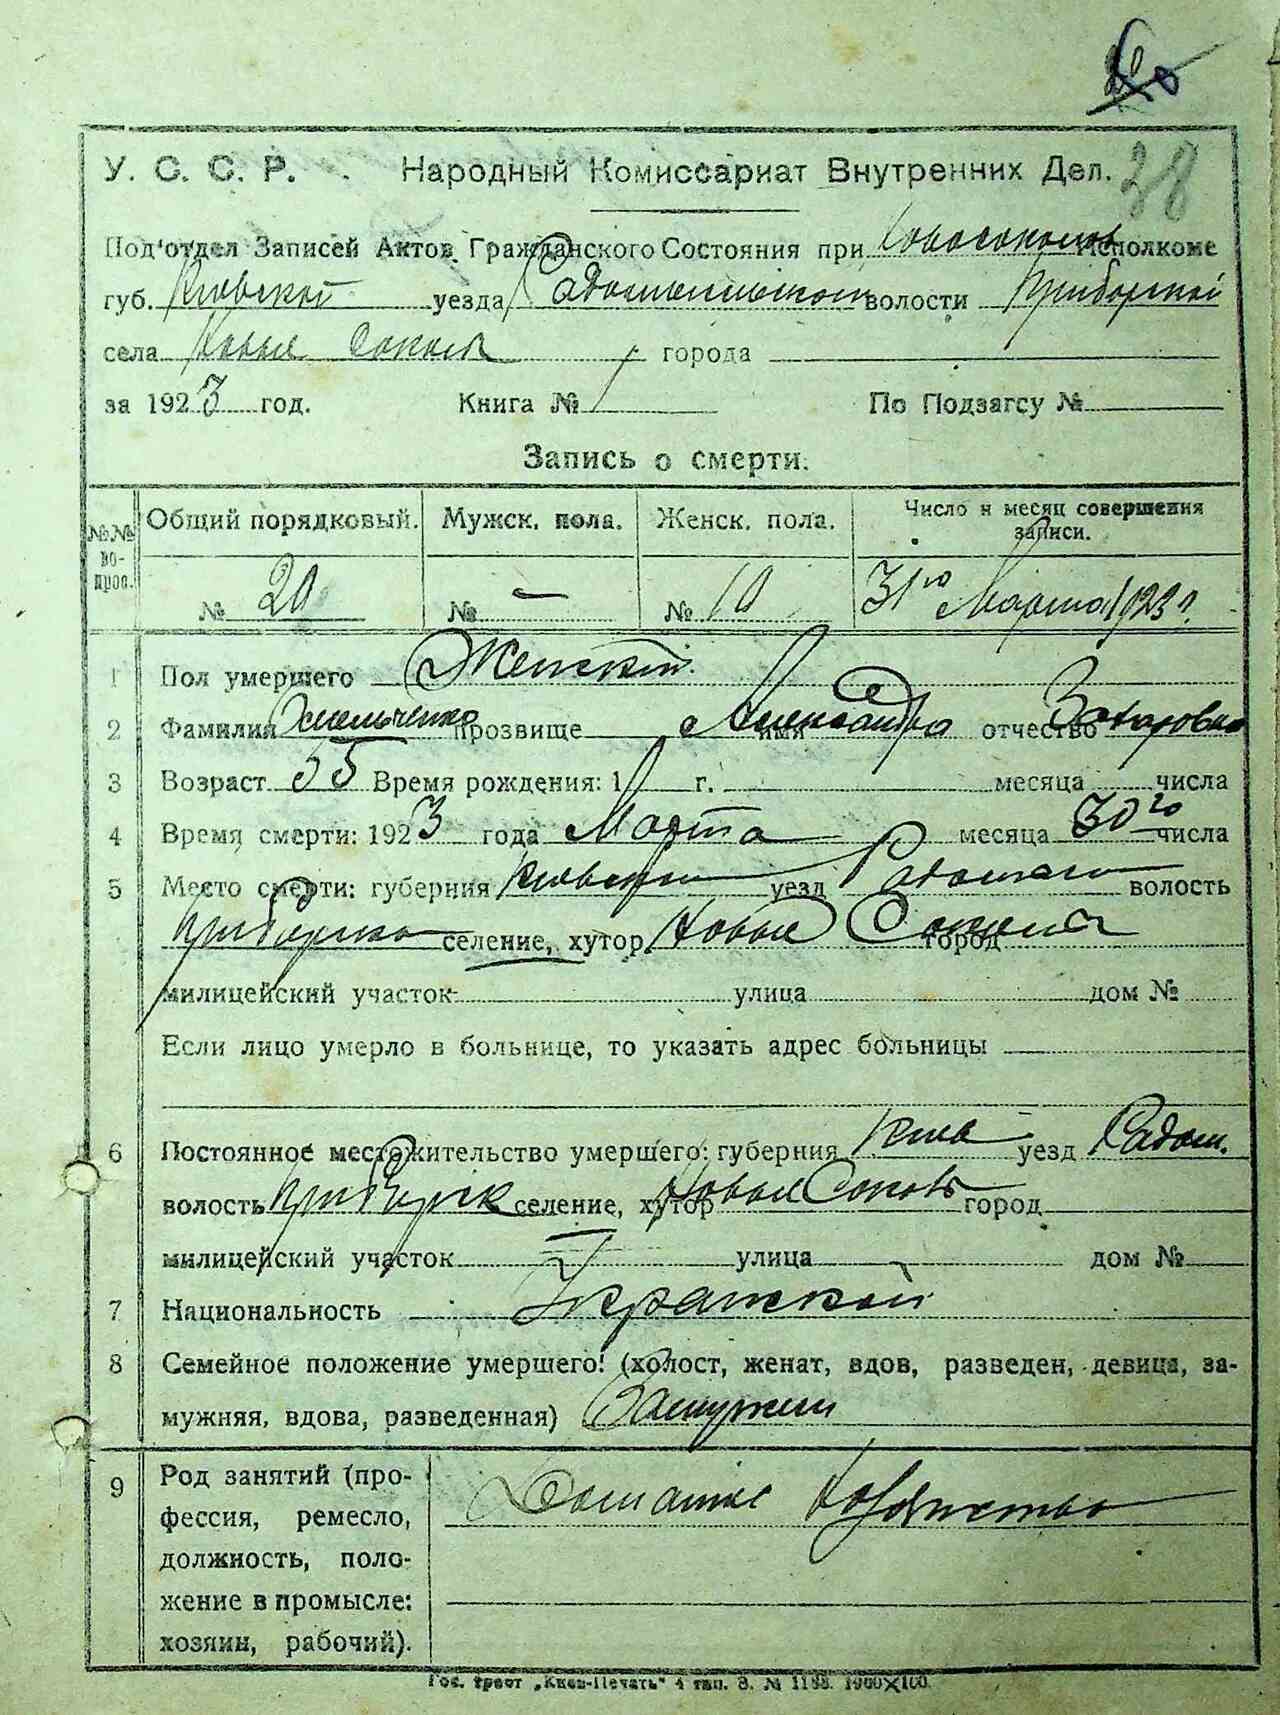 38
У. С. С. Р. Народный Комиссариат Внутренних Дел.
Под'отдел Записей Актов Гражданского Состояния при Новосоколов Исполкоме
губ. Киевской уезда Радомысльском волости Приборской
села Новые Соколы города
за 1923 год. Книга № По Подзагсу №
Запись о смерти.
№№ во-прос. Общий порядковый. Мужск. пола. Женск. пола. Число и месяц совершения записи.
№ 20 № — № 10 31го Марта 1923 г.
1 Пол умершего Женский
2 Фамилия Хмельченко прозвище имя Александра отчество Захаровна
3 Возраст 55 Время рождения: 1 г. месяца числа
4 Время смерти: 1923 года Марта месяца 30го числа
5 Место смерти: губерния Киевская уезд волость
Приборская селение, хутор Новые город
милицейский участок улица дом №
Если лицо умерло в больнице, то указать адрес больницы
6 Постоянное местожительство умершего: губерния Киев уезд Радом.
волость Приборск селение, хутор Новые Соколы город
милицейский участок улица дом №
7 Национальность
8 Семейное положение умершего: (холост, женат, вдов, разведен, девица, за-
мужняя, вдова, разведенная) Замужем
9 Род занятий (про-фессия, ремесло, должность, поло-жение в промысле: хозяин, рабочий). Домашнее хозяйство
Гос. трест „Киев-Печать" 4 тип. З. № 1188. 1000×100.